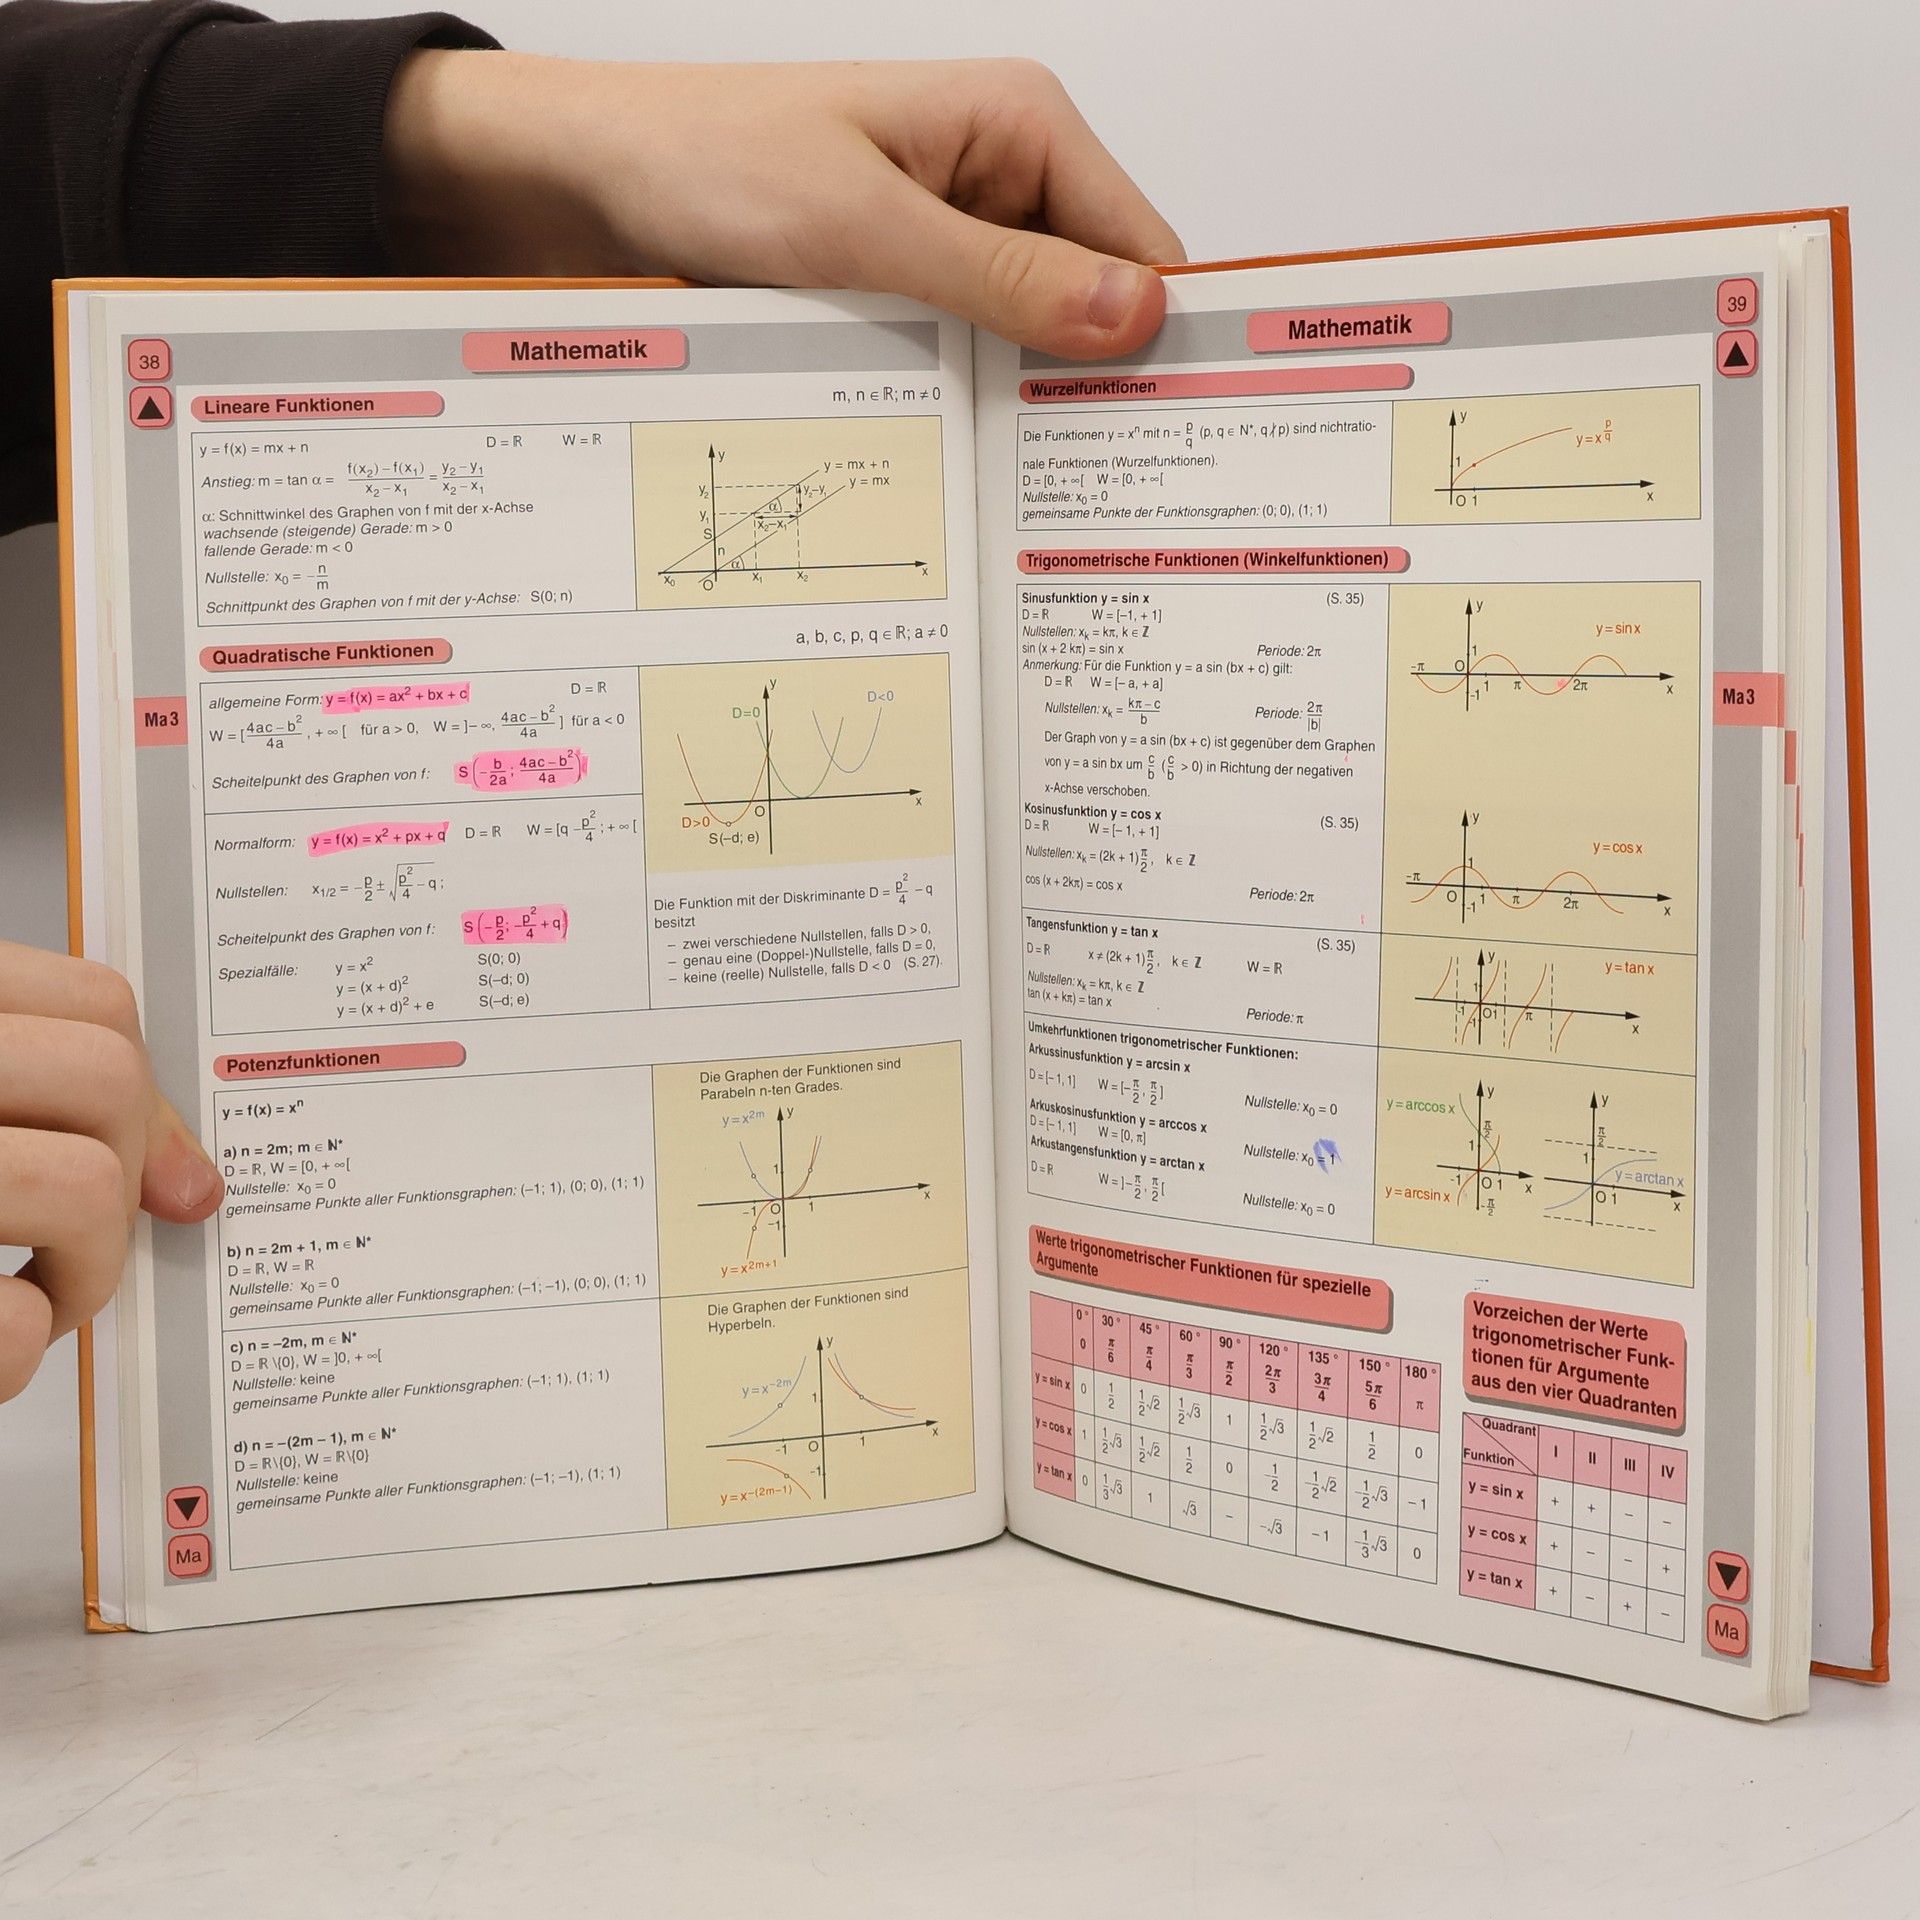 38
Mathematik
Lineare Funktionen
m, n ∈ ℝ; m ≠ 0
y = f(x) = mx + n D = ℝ W = ℝ
Anstieg: m = tan α = (f(x₂) – f(x₁))/(x₂ – x₁) = (y₂ – y₁)/(x₂ – x₁)
α: Schnittwinkel des Graphen von f mit der x-Achse
wachsende (steigende) Gerade: m > 0
fallende Gerade: m < 0
Nullstelle: x₀ = –n/m
Schnittpunkt des Graphen von f mit der y-Achse: S(0; n)
y
y = mx + n
y = mx
y₂
y₂–y₁
y₁
α
x₂–x₁
S
n
α
x₀ O x₁ x₂ x
Quadratische Funktionen
a, b, c, p, q ∈ ℝ; a ≠ 0
allgemeine Form: y = f(x) = ax² + bx + c D = ℝ
W = [(4ac – b²)/4a, + ∞ [ für a > 0, W = ]– ∞, (4ac – b²)/4a ] für a < 0
Scheitelpunkt des Graphen von f: S(–b/2a; (4ac – b²)/4a)
Normalform: y = f(x) = x² + px + q D = ℝ W = [q – p²/4; + ∞ [
Nullstellen: x₁/₂ = –p/2 ± √(p²/4 – q);
Scheitelpunkt des Graphen von f: S(–p/2; –p²/4 + q)
Spezialfälle: y = x² S(0; 0)
y = (x + d)² S(–d; 0)
y = (x + d)² + e S(–d; e)
y
D=0
D<0
x
D>0
O
S(–d; e)
Die Funktion mit der Diskriminante D = p²/4 – q
besitzt
– zwei verschiedene Nullstellen, falls D > 0,
– genau eine (Doppel-)Nullstelle, falls D = 0,
– keine (reelle) Nullstelle, falls D < 0 (S. 27).
Ma 3
Potenzfunktionen
y = f(x) = xⁿ
a) n = 2m; m ∈ ℕ*
D = ℝ, W = [0, + ∞[
Nullstelle: x₀ = 0
gemeinsame Punkte aller Funktionsgraphen: (–1; 1), (0; 0), (1; 1)
b) n = 2m + 1, m ∈ ℕ*
D = ℝ, W = ℝ
Nullstelle: x₀ = 0
gemeinsame Punkte aller Funktionsgraphen: (–1; –1), (0; 0), (1; 1)
Die Graphen der Funktionen sind
Parabeln n-ten Grades.
y = x²ᵐ
y
1
–1 O 1 x
–1
y = x²ᵐ⁺¹
c) n = –2m, m ∈ ℕ*
D = ℝ \{0}, W = ]0, + ∞[
Nullstelle: keine
gemeinsame Punkte aller Funktionsgraphen: (–1; 1), (1; 1)
d) n = –(2m – 1), m ∈ ℕ*
D = ℝ\{0}, W = ℝ\{0}
Nullstelle: keine
gemeinsame Punkte aller Funktionsgraphen: (–1; –1), (1; 1)
Die Graphen der Funktionen sind
Hyperbeln.
y
y = x⁻²ᵐ
1
–1 O 1 x
–1
y = x⁻⁽²ᵐ⁻¹⁾
Ma
39
Mathematik
Wurzelfunktionen
Die Funktionen y = xⁿ mit n = p/q (p, q ∈ N*, q ∤ p) sind nichtratio-
nale Funktionen (Wurzelfunktionen).
D = [0, + ∞[ W = [0, + ∞[
Nullstelle: x₀ = 0
gemeinsame Punkte der Funktionsgraphen: (0; 0), (1; 1)
y
y = x^(p/q)
1
O 1 x
Trigonometrische Funktionen (Winkelfunktionen)
Sinusfunktion y = sin x (S. 35)
D = ℝ W = [–1, + 1]
Nullstellen: xₖ = kπ, k ∈ ℤ
sin (x + 2 kπ) = sin x Periode: 2π
Anmerkung: Für die Funktion y = a sin (bx + c) gilt:
D = ℝ W = [– a, + a]
Nullstellen: xₖ = (kπ – c)/b Periode: 2π/|b|
Der Graph von y = a sin (bx + c) ist gegenüber dem Graphen
von y = a sin bx um c/b (c/b > 0) in Richtung der negativen
x-Achse verschoben.
y
y = sin x
–π O 1 π 2π x
1
–1
Kosinusfunktion y = cos x (S. 35)
D = ℝ W = [– 1, + 1]
Nullstellen: xₖ = (2k + 1)π/2, k ∈ ℤ
cos (x + 2kπ) = cos x Periode: 2π
y
y = cos x
1
–π O 1 π 2π x
–1
Tangensfunktion y = tan x (S. 35)
D = ℝ x ≠ (2k + 1)π/2, k ∈ ℤ W = ℝ
Nullstellen: xₖ = kπ, k ∈ ℤ
tan (x + kπ) = tan x Periode: π
y
y = tan x
1
–1 O 1 π x
–1
Umkehrfunktionen trigonometrischer Funktionen:
Arkussinusfunktion y = arcsin x
D = [– 1, 1] W = [–π/2, π/2] Nullstelle: x₀ = 0
Arkuskosinusfunktion y = arccos x
D = [– 1, 1] W = [0, π] Nullstelle: x₀ = 1
Arkustangensfunktion y = arctan x
D = ℝ W = ]–π/2, π/2[ Nullstelle: x₀ = 0
y
y = arccos x
π/2
1
–1 O 1 x
y = arcsin x
–π/2
y
π/2
1
y = arctan x
O 1 x
Ma 3
Werte trigonometrischer Funktionen für spezielle
Argumente
0° 30° 45° 60° 90° 120° 135° 150° 180°
0 π/6 π/4 π/3 π/2 2π/3 3π/4 5π/6 π
y = sin x 0 1/2 1/2√2 1/2√3 1 1/2√3 1/2√2 1/2 0
y = cos x 1 1/2√3 1/2√2 1/2 0 –1/2 –1/2√2 –1/2√3 – 1
y = tan x 0 1/3√3 1 √3 – –√3 – 1 –1/3√3 0
Vorzeichen der Werte
trigonometrischer Funk-
tionen für Argumente
aus den vier Quadranten
Quadrant
Funktion I II III IV
y = sin x + + – –
y = cos x + – – +
y = tan x + – + –
Ma